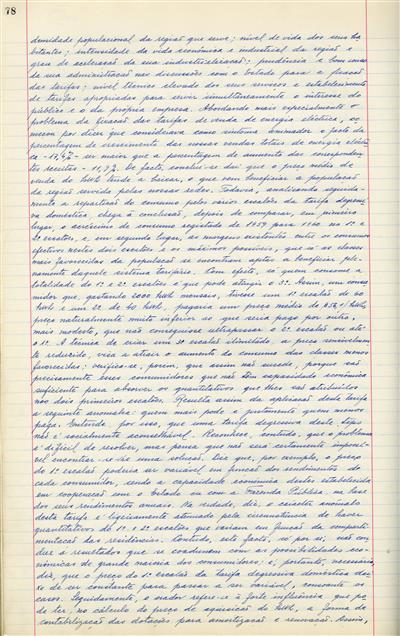 78
densidade populacional da região que serve; nível de vida dos seus ha
bitantes; intensidade da vida económica e industrial da região e
grau de aceleração da sua industrialização; prudência e bom senso
da sua administração nas discussões com o Estado para a fixação
das tarifas; nível técnico elevado dos seus serviços e estabelecimento
de tarifas apropriadas para servir simultaneamente o interesse do
público e o da própria empresa. Abordando mais especialmente o
problema da fixação das tarifas de venda de energia eléctrica, co
meçou por dizer que considerava como sintoma animador o facto da
percentagem de crescimento das nossas vendas totais de energia eléctri
ca - 17,4% - ser maior que a percentagem de aumento das corresponden
tes receitas - 11,9%. De facto, conclui-se daí que o preço médio de
venda do kWh tende a baixar, o que vem beneficiar a população
da região servida pelas nossas redes. Todavia, analisando seguida-
mente a repartição do consumo pelos vários escalões da tarifa degressi
va doméstica, chega à conclusão, depois de comparar, em primeiro
lugar, o acréscimo de consumo registado de 1959 para 1960 no 1º e
2º escalões, e em segundo lugar, as margens existentes entre os consumos
efectivos destes dois escalões e os máximos possíveis, que só as classes
mais favorecidas da população se encontram aptas a beneficiar ple-
namente daquele sistema tarifário. Com efeito, só quem consome a
totalidade do 1º e 2º escalões é que pode atingir o 3º. Assim, um consu
midor que, gastando 2000 kWh mensais, tivesse um 1º escalão de 20
kWh e um 2º de 40 kWh, pagaria um preço médio de /kWh,
preço naturalmente muito inferior ao que seria pago por outro,
mais modesto, que não conseguisse ultrapassar o 2º escalão ou até
o 1º. A técnica de criar um 3º escalão ilimitado, a preço sensivelmen
te reduzido, visa a atrair o aumento do consumo das classes menos
favorecidas; verifica-se, porém, que assim não sucede, porque são
precisamente esses consumidores que não têm capacidade económica
suficiente para absorver os quantitativos que lhes são atribuídos
nos dois primeiros escalões. Resulta assim da aplicação desta tarifa
a seguinte anomalia: quem mais pode é justamente quem menos
paga. Entende, por isso, que uma tarifa degressiva deste tipo
não é socialmente aconselhável. Reconhece, contudo, que o problema
é difícil de resolver, mas pensa que não será certamente impossí-
vel encontrar-se-lhe uma solução. Diz que, por exemplo, o preço
do 1º escalão poderia ser variável em função dos rendimentos de
cada consumidor, sendo a capacidade económica destes estabelecida
em cooperação com o Estado ou com a Fazenda Pública, na base
dos seus rendimentos anuais. Na verdade, diz, o carácter anómalo
desta tarifa é ligeiramente atenuado pela circunstância de haver
quantitativos de 1º e 2º escalões que variam em função da comparti-
mentação das residências. Contudo, este facto, só por si, não con
duz a resultados que se coadunem com as possibilidades eco-
nómicas da grande maioria dos consumidores; é, portanto, necessário,
diz, que o preço do 1º escalão da tarifa degressiva doméstica dei-
xe de ser constante para passar a ser variável, consoante os
casos. Seguidamente, o orador refere-se à forte influência que po
de ter, no cálculo do preço de aquisição do kWh, a forma de
contabilização das dotações para amortização e renovação. Assim,